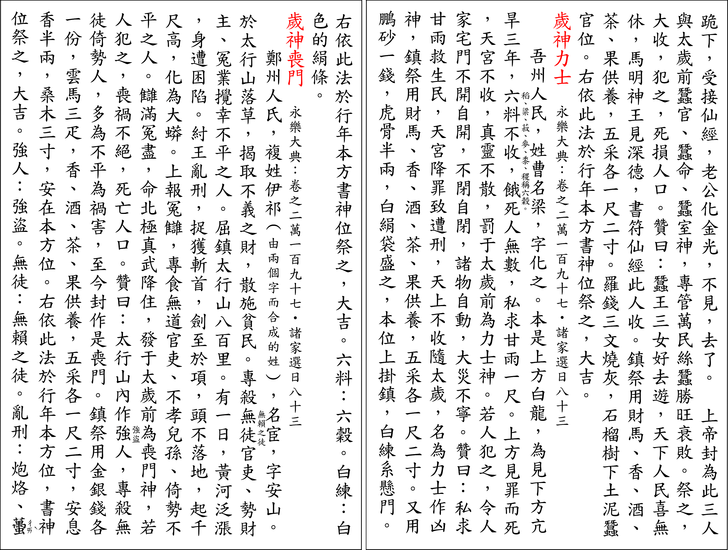 跪下，受接仙經，老公化金光，不見，去了。　上帝封為此三人
與太歲前蠶官、蠶命、蠶室神，專管萬民絲蠶勝旺衰敗。祭之，
大收，犯之，死損人口。贊曰：蠶王三女好去遊，天下人民喜無
休，馬明神王見深德，書符仙經此人收。鎮祭用財馬、香、酒、
茶、果供養，五采各一尺二寸。羅錢三文燒灰，石榴樹下土泥蠶
官位。右依此法於行年本方書神位祭之，大吉。
歲神力士　永樂大典：卷之二萬一百九十七‧諸家選日八十三
吾州人民，姓曹名梁，字化之。本是上方白龍，為見下方亢
旱三年，六料不收，餓死人無數，私求甘雨一尺。上方見罪而死
稻、粱、菽、麥、黍、稷稱六穀。
，天宮不收，真靈不散，罰于太歲前為力士神。若人犯之，令人
家宅門不開自開，不閉自閉，諸物自動，大災不寧。贊曰：私求
甘雨救生民，天宮降罪致遭刑，天上不收隨太歲，名為力士作凶
神，鎮祭用財馬、香、酒、茶、果供養，五采各一尺二寸。又用
鵬砂一錢，虎骨半兩，白絹袋盛之，本位上掛鎮，白練系懸門。
右依此法於行年本方書神位祭之，大吉。六料：六穀。白練：白
色的絹條。
歲神喪門　永樂大典：卷之二萬一百九十七‧諸家選日八十三
鄭州人氏，複姓伊祁（由兩個字而合成的姓），名宦，字安山。
於太行山落草，揭取不義之財，散施貧民。專殺無徒官吏、勢財
無賴之徒
主、冤業攪幸不平之人。屈鎮太行山八百里。有一日，黃河泛漲
，身遭困陷。紂王亂刑，捉獲斬首，劍至於項，頭不落地，起千
尺高，化為大蟒。上報冤讎，專食無道官吏、不孝兒孫、倚勢不
平之人。讎滿冤盡，命北極真武降住，發于太歲前為喪門神，若
人犯之，喪禍不絕，死亡人口。贊曰：太行山內作強人，專殺無
強盜
徒倚勢人，多為不平為禍害，至今封作是喪門。鎮祭用金銀錢各
一份，雲馬三疋，香、酒、茶、果供養，五采各一尺二寸，安息
香半兩，桑木三寸，安在本方位。右依此法於行年本方位，書神
位祭之，大吉。強人：強盜。無徒：無賴之徒。亂刑：炮烙、蠆